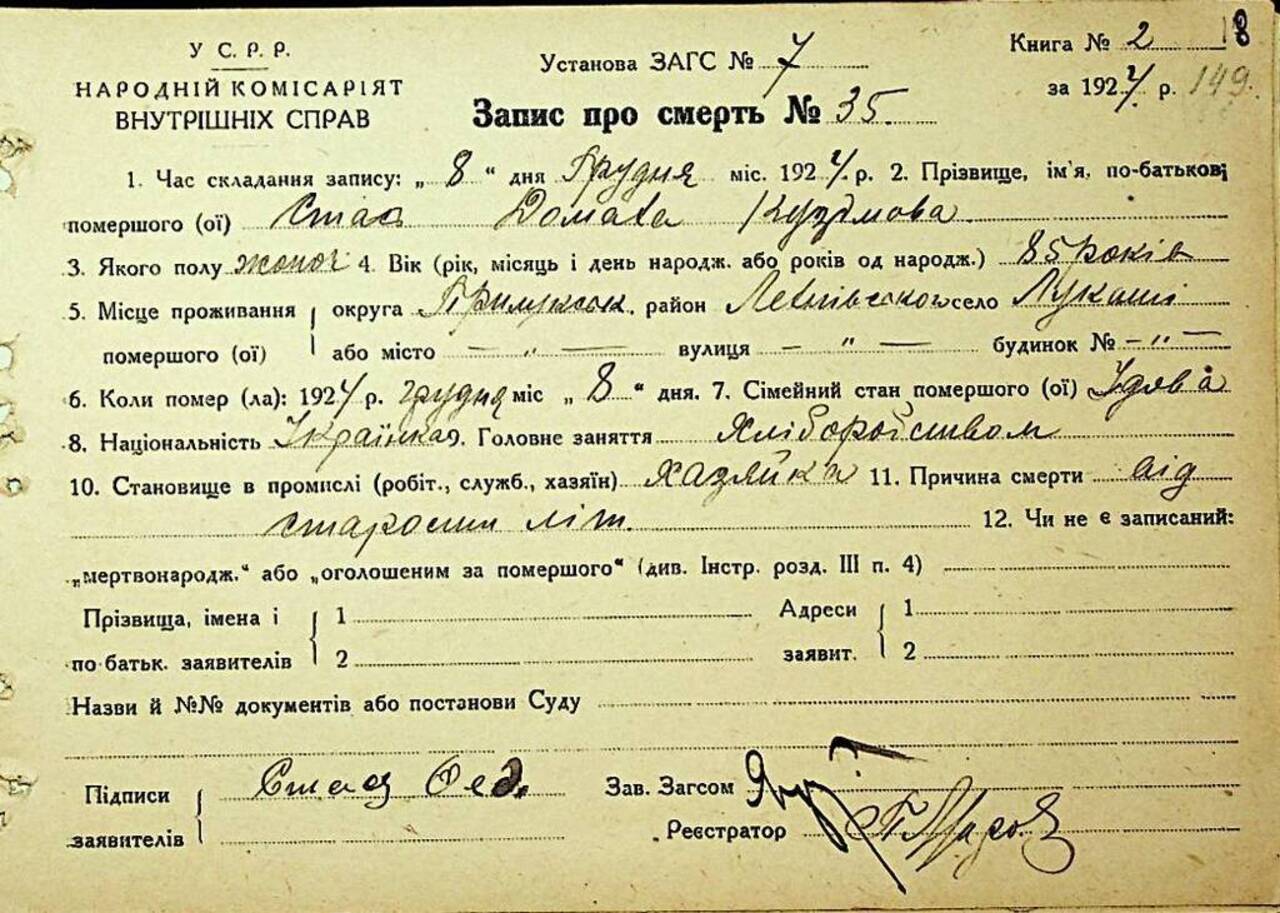 У С. Р. Р.
НАРОДНІЙ КОМІСАРІЯТ
ВНУТРІШНІХ СПРАВ
Установа ЗАГС № 7
Запис про смерть № 35.
Книга № 2 8
за 1927 р. 149.
1. Час складання запису: „ 8 “ дня Грудня міс. 1927 р. 2. Прізвище, ім'я, по-батькові
помершого (ої) Стас Домаха Кузьмова
3. Якого полу жоноч 4. Вік (рік, місяць і день народж. або років од народж.) 85 років
5. Місце проживання округа Прилуцьк. район село Лукаші
помершого (ої) або місто — „ — вулиця — „ — будинок № — „ —
6. Коли помер (ла): 1927 р. грудня міс „ 8 “ дня. 7. Сімейний стан помершого (ої) Удова
8. Національність Українка 9. Головне заняття Хліборобством
10. Становище в промислі (робіт., служб., хазяїн) Хазяйка 11. Причина смерти від
старости літ. 12. Чи не є записаний:
„мертвонародж.“ або „оголошеним за помершого“ (див. Інстр. розд. III п. 4)
Прізвища, імена і 1 Адреси 1
по батьк. заявителів 2 заявит. 2
Назви й №№ документів або постанови Суду
Підписи Стас Фед. Зав. Загсом
заявителів Реєстратор